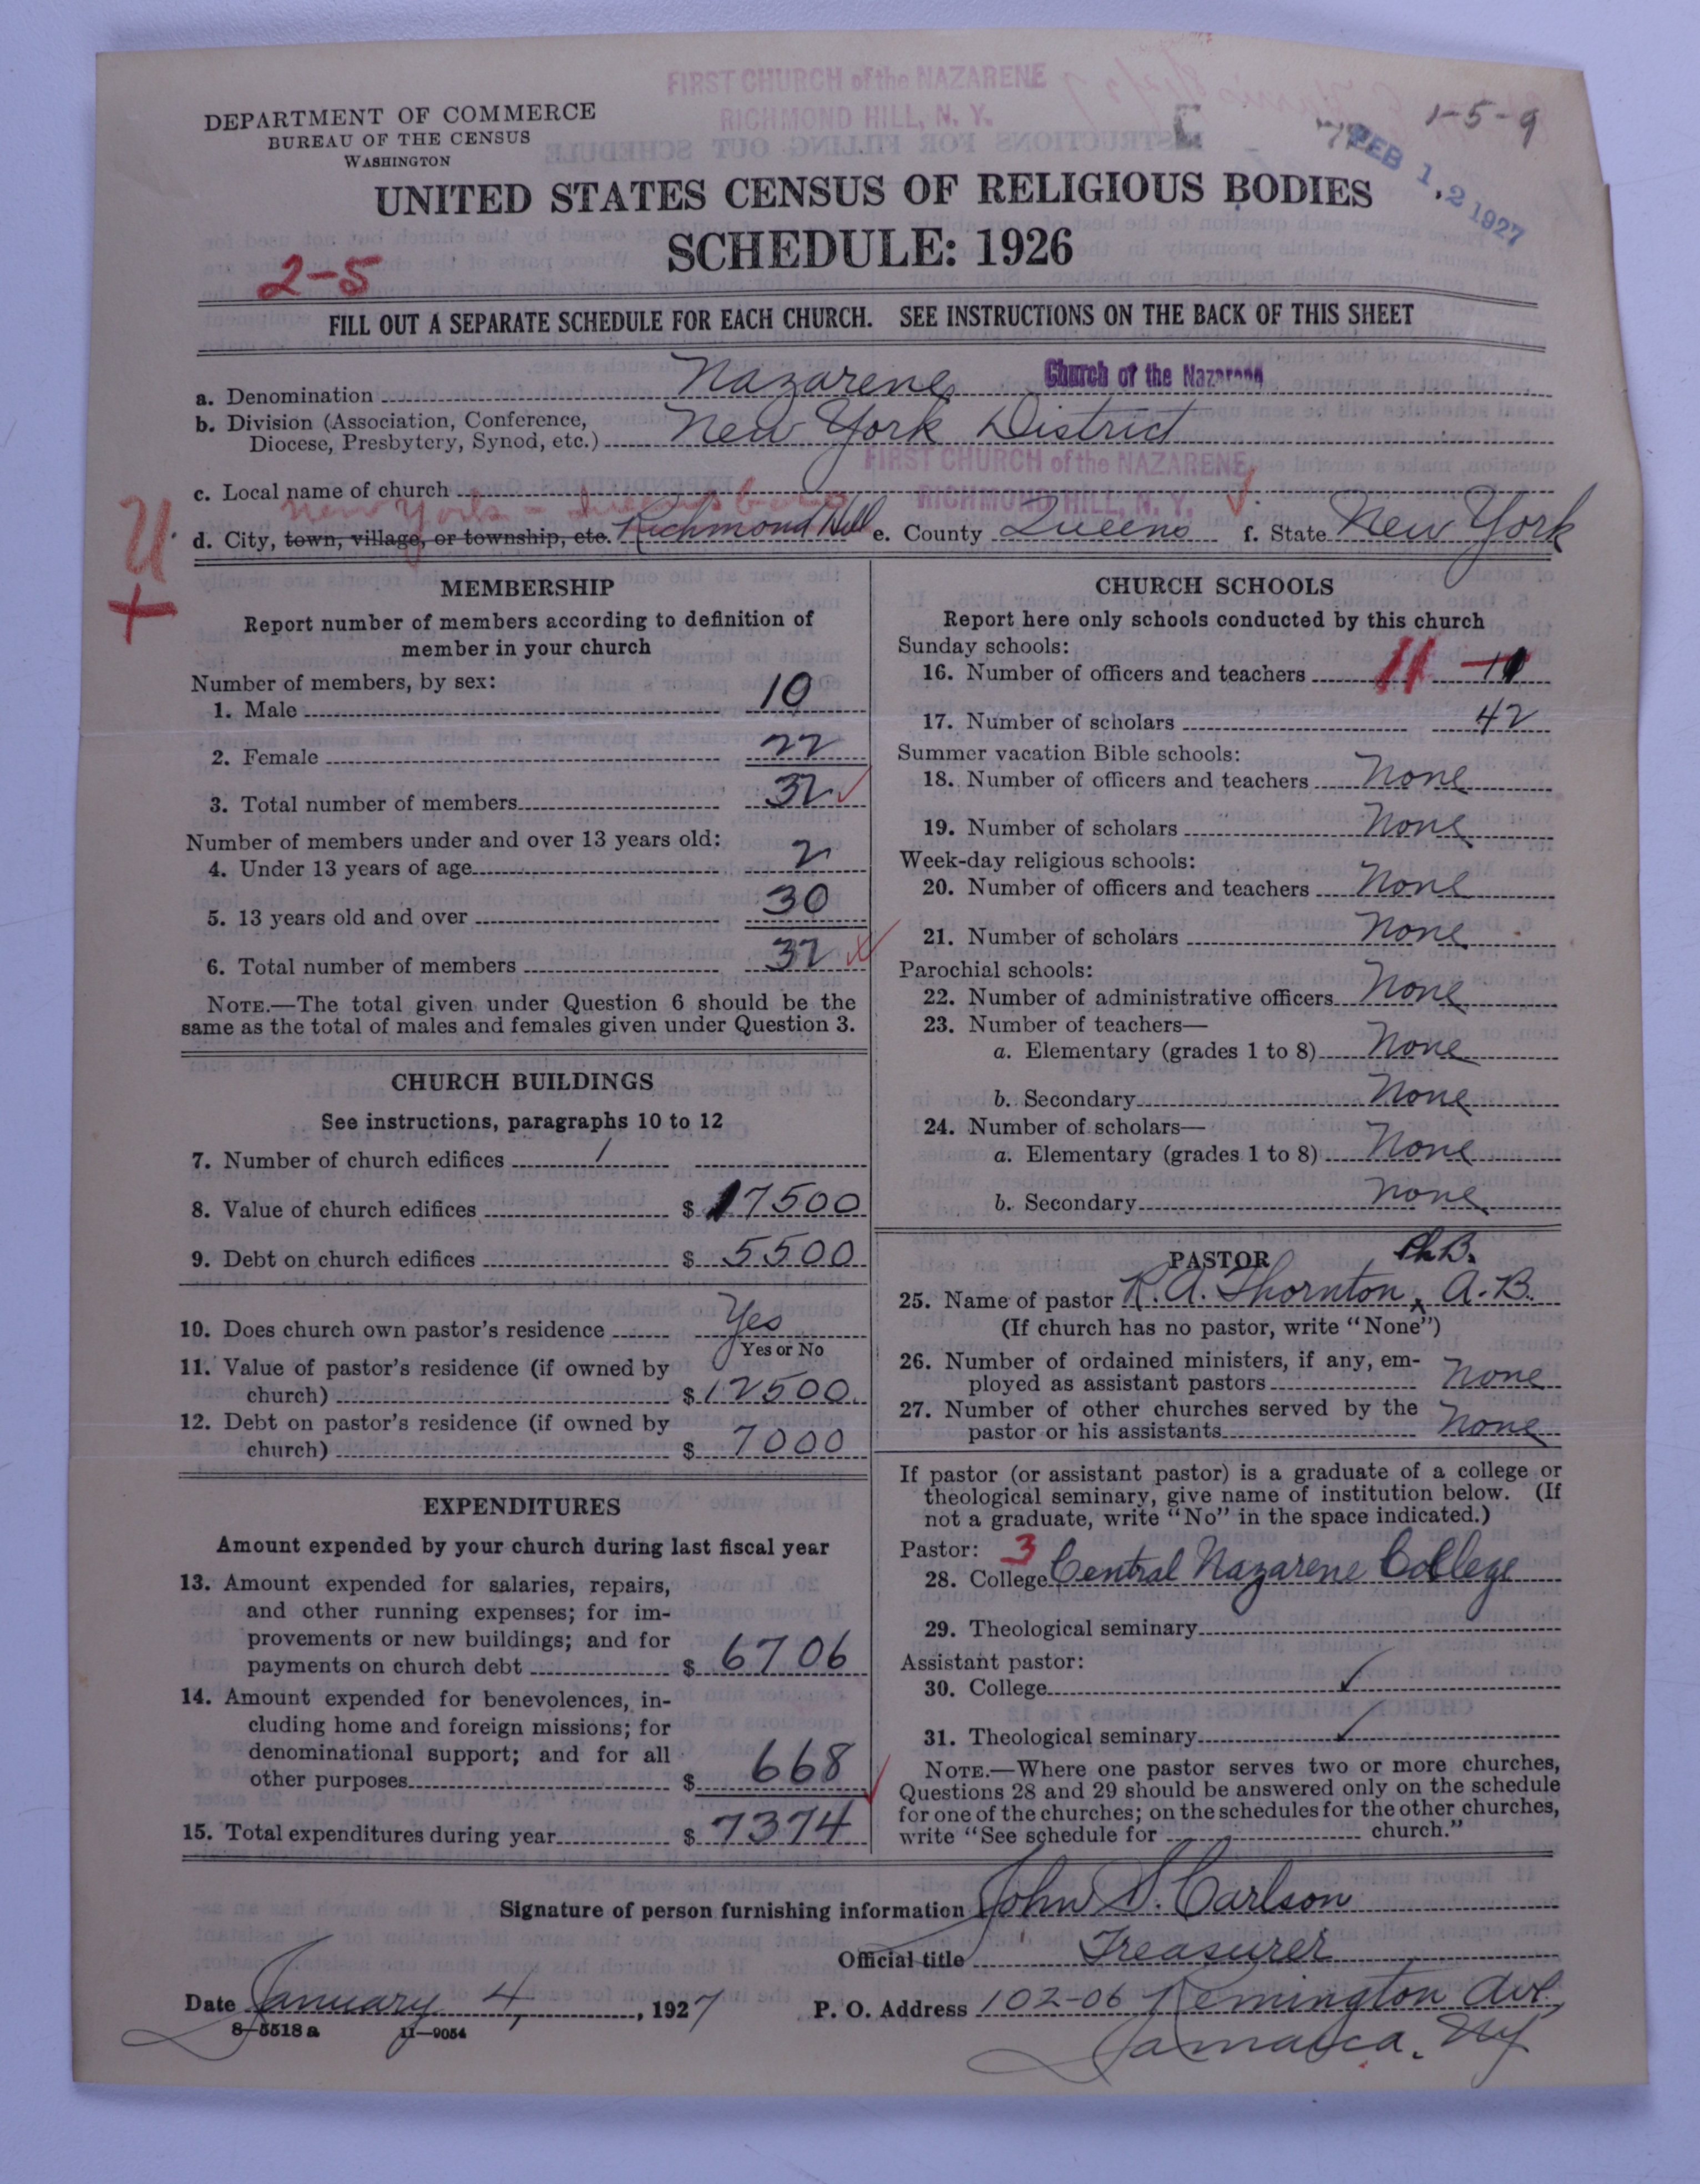 FIRST CHURCH of the NAZARENE
RICHMOND HILL, N. Y.
1-5-9
FEB 12 1927
DEPARTMENT OF COMMERCE
BUREAU OF THE CENSUS
WASHINGTON
UNITED STATES CENSUS OF RELIGIOUS BODIES
SCHEDULE: 1926
2-5
FILL OUT A SEPARATE SCHEDULE FOR EACH CHURCH. SEE INSTRUCTIONS ON THE BACK OF THIS SHEET
a. Denomination Nazarene Church of the Nazarene
b. Division (Association, Conference,
Diocese, Presbytery, Synod, etc.) New York District
FIRST CHURCH of the NAZARENE
c. Local name of church RICHMOND HILL, N. Y.
New York - Queens boro
d. City, town, village, or township, etc. Richmond Hill e. County Queens f. State New York
U
+
MEMBERSHIP
Report number of members according to definition of
member in your church
Number of members, by sex:
1. Male 10
2. Female 22
3. Total number of members 32
Number of members under and over 13 years old:
4. Under 13 years of age 2
5. 13 years old and over 30
6. Total number of members 32
NOTE.—The total given under Question 6 should be the
same as the total of males and females given under Question 3.
CHURCH BUILDINGS
See instructions, paragraphs 10 to 12
7. Number of church edifices 1
8. Value of church edifices $ 17500
9. Debt on church edifices $ 5500
10. Does church own pastor's residence Yes
Yes or No
11. Value of pastor's residence (if owned by
church) $ 12500
12. Debt on pastor's residence (if owned by
church) $ 7000
EXPENDITURES
Amount expended by your church during last fiscal year
13. Amount expended for salaries, repairs,
and other running expenses; for im-
provements or new buildings; and for
payments on church debt $ 6706
14. Amount expended for benevolences, in-
cluding home and foreign missions; for
denominational support; and for all
other purposes $ 668
15. Total expenditures during year $ 7374
CHURCH SCHOOLS
Report here only schools conducted by this church
Sunday schools:
16. Number of officers and teachers 11
17. Number of scholars 42
Summer vacation Bible schools:
18. Number of officers and teachers None
19. Number of scholars None
Week-day religious schools:
20. Number of officers and teachers None
21. Number of scholars None
Parochial schools:
22. Number of administrative officers None
23. Number of teachers—
a. Elementary (grades 1 to 8) None
b. Secondary None
24. Number of scholars—
a. Elementary (grades 1 to 8) None
b. Secondary None
PASTOR Ph.B.
25. Name of pastor R. A. Thornton, A.B.
(If church has no pastor, write "None")
26. Number of ordained ministers, if any, em-
ployed as assistant pastors None
27. Number of other churches served by the
pastor or his assistants None
If pastor (or assistant pastor) is a graduate of a college or
theological seminary, give name of institution below. (If
not a graduate, write "No" in the space indicated.)
Pastor: 3
28. College Central Nazarene College
29. Theological seminary
Assistant pastor:
30. College
31. Theological seminary
NOTE.—Where one pastor serves two or more churches,
Questions 28 and 29 should be answered only on the schedule
for one of the churches; on the schedules for the other churches,
write "See schedule for church."
Signature of person furnishing information John S. Carlson
Official title Treasurer
Date January 4, 1927 P. O. Address 102-06 Remington Ave.
8-5518 a 11-9054
Jamaica, NY